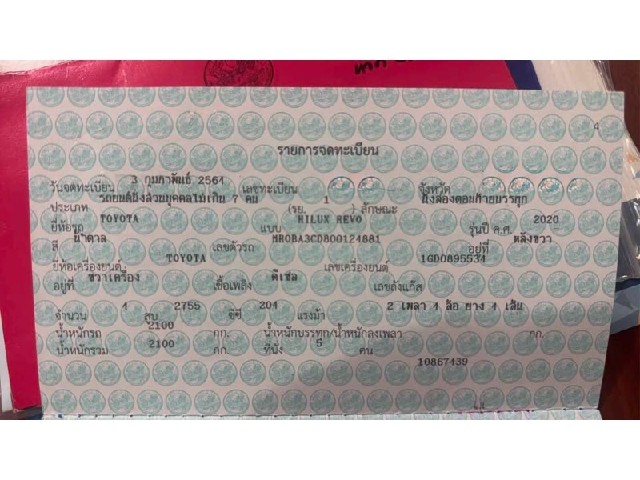 รายการจดทะเบียน
วันจดทะเบียน 3 กุมภาพันธ์ 2564 เลขทะเบียน จังหวัด
ประเภท รถยนต์นั่งส่วนบุคคลไม่เกิน 7 คน (รย. 1 ) ลักษณะ นั่งสองตอนท้ายบรรทุก
ยี่ห้อรถ TOYOTA แบบ HILUX REVO รุ่นปี ค.ศ. 2020
สี น้ำตาล เลขตัวรถ MR0BA3CD800124881 อยู่ที่ หลังขวา
ยี่ห้อเครื่องยนต์ TOYOTA เลขเครื่องยนต์ 1GD0895534
อยู่ที่ ขวาเครื่อง เชื้อเพลิง ดีเซล เลขถังแก๊ส
จำนวน 4 สูบ 2755 ซีซี 204 แรงม้า 2 เพลา 4 ล้อ ยาง 4 เส้น
น้ำหนักรถ 2100 กก. น้ำหนักบรรทุก/น้ำหนักลงเพลา กก.
น้ำหนักรวม 2100 กก. ที่นั่ง 5 คน
10867439